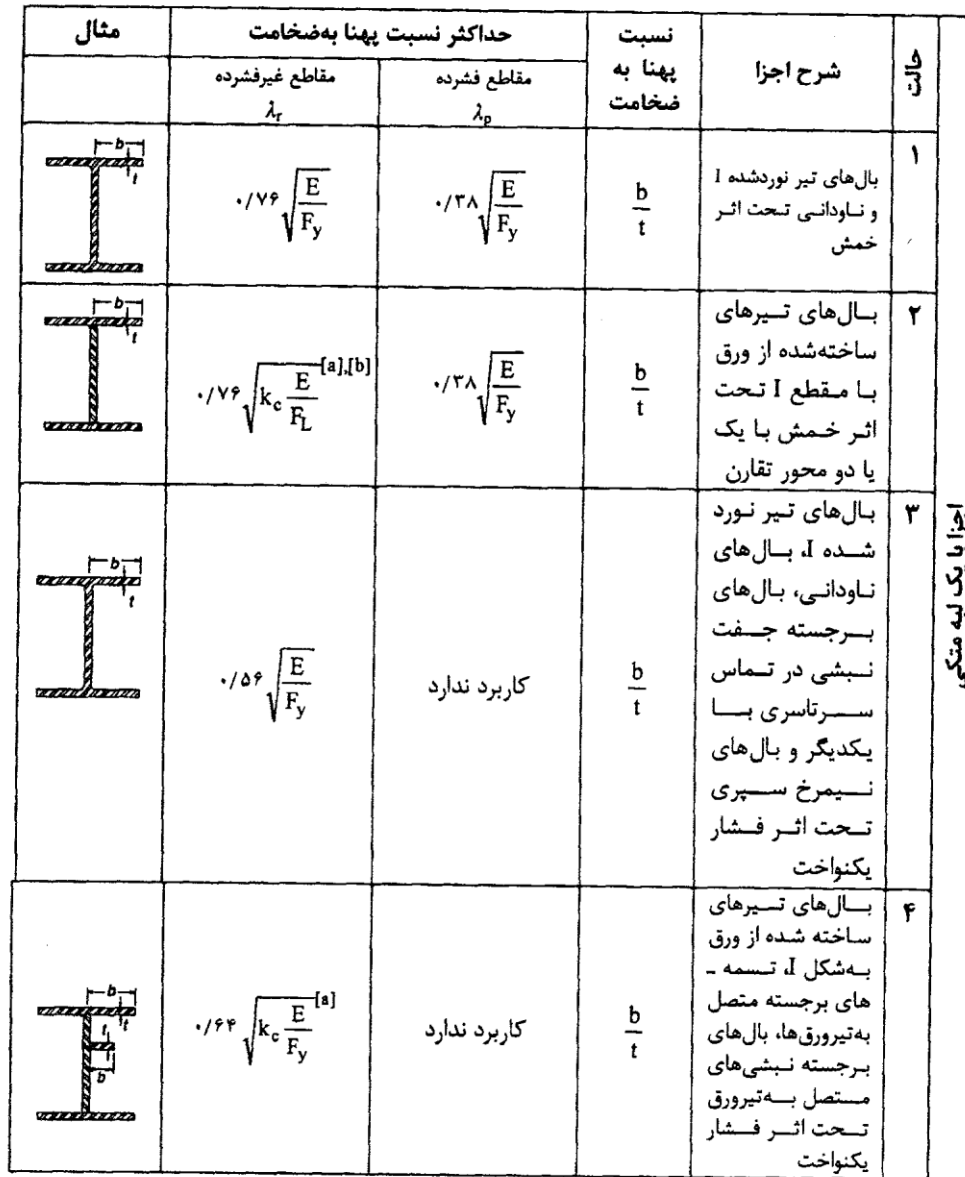 حالت
شرح اجزا
نسبت
پهنا به
ضخامت
حداکثر نسبت پهنا به‌ضخامت
مثال
مقاطع فشرده
λp
مقاطع غیرفشرده
λr
اجزا با یک لبه متکی
۱
بال‌های تیر نوردشده I
و ناودانی تحت اثر
خمش
b/t
۰/۳۸ √(E/Fy)
۰/۷۶ √(E/Fy)
b
t
۲
بال‌های تیرهای
ساخته‌شده از ورق
با مقطع I تحت
اثر خمش با یک
یا دو محور تقارن
b/t
۰/۳۸ √(E/Fy)
۰/۷۶ √(kc E/FL) [a],[b]
b
t
۳
بال‌های تیر نورد
شده I، بال‌های
ناودانی، بال‌های
برجسته جفت
نبشی در تماس
سرتاسری با
یکدیگر و بال‌های
نیمرخ سپری
تحت اثر فشار
یکنواخت
b/t
کاربرد ندارد
۰/۵۶ √(E/Fy)
b
t
۴
بال‌های تیرهای
ساخته شده از ورق
به‌شکل I، تسمه -
های برجسته متصل
به‌تیرورق‌ها، بال‌های
برجسته نبشی‌های
متصل به‌تیرورق
تحت اثر فشار
یکنواخت
b/t
کاربرد ندارد
۰/۶۴ √(kc E/Fy) [a]
b
t
t
b